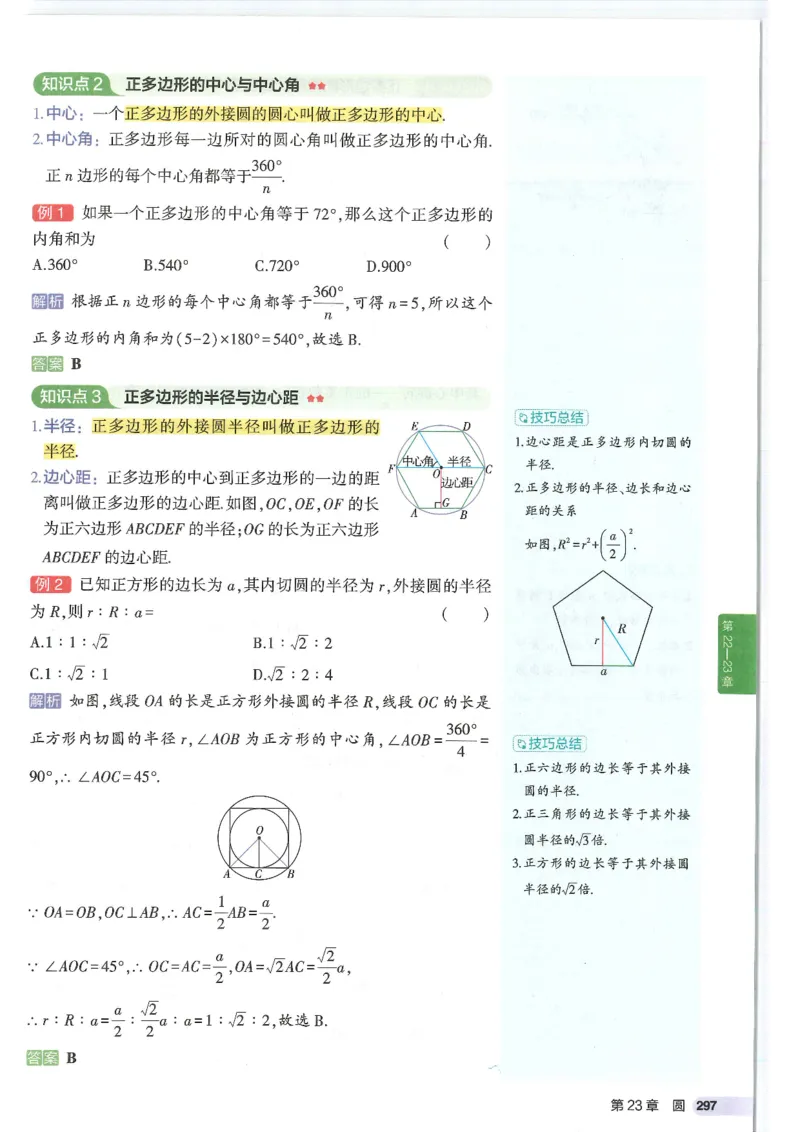 知识点2 正多边形的中心与中心角 ★★
1.中心：一个正多边形的外接圆的圆心叫做正多边形的中心.
2.中心角：正多边形每一边所对的圆心角叫做正多边形的中心角.
正n边形的每个中心角都等于360°/n.
例1 如果一个正多边形的中心角等于72°,那么这个正多边形的
内角和为 ( )
A.360° B.540° C.720° D.900°
解析 根据正n边形的每个中心角都等于360°/n,可得n=5,所以这个
正多边形的内角和为(5-2)×180°=540°,故选B.
答案 B
知识点3 正多边形的半径与边心距 ★★
1.半径：正多边形的外接圆半径叫做正多边形的
半径.
2.边心距：正多边形的中心到正多边形的一边的距
离叫做正多边形的边心距.如图,OC,OE,OF的长
为正六边形ABCDEF的半径;OG的长为正六边形
ABCDEF的边心距.
E D
中心角 半径
F O C
边心距
G
A B
例2 已知正方形的边长为a,其内切圆的半径为r,外接圆的半径
为R,则r∶R∶a= ( )
A.1∶1∶√2 B.1∶√2∶2
C.1∶√2∶1 D.√2∶2∶4
解析 如图,线段OA的长是正方形外接圆的半径R,线段OC的长是
正方形内切圆的半径r,∠AOB为正方形的中心角,∠AOB=360°/4=
90°,∴∠AOC=45°.
O
A C B
∵OA=OB,OC⊥AB,∴AC=1/2AB=a/2.
∵∠AOC=45°,∴OC=AC=a/2,OA=√2AC=√2/2a,
∴r∶R∶a=a/2∶√2/2a∶a=1∶√2∶2,故选B.
答案 B
技巧总结
1.边心距是正多边形内切圆的
半径.
2.正多边形的半径、边长和边心
距的关系
如图,R²=r²+(a/2)².
R
r
a
技巧总结
1.正六边形的边长等于其外接
圆的半径.
2.正三角形的边长等于其外接
圆半径的√3倍.
3.正方形的边长等于其外接圆
半径的√2倍.
第22—23章
第23章 圆 297